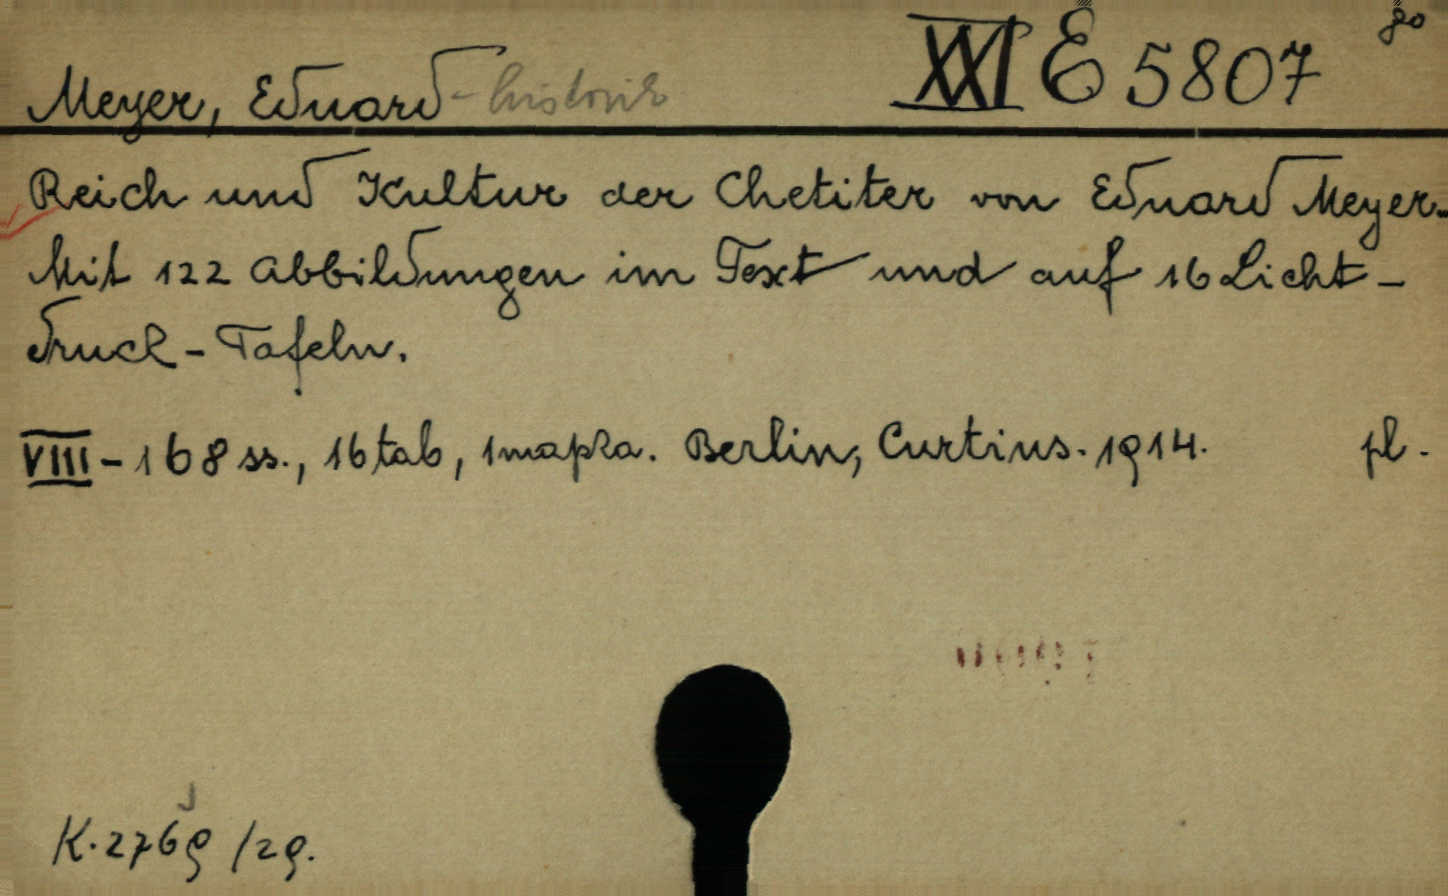 8o
Meyer, Eduard - historik XXI E 5807
Reich und Kultur der Chetiter von Eduard Meyer.
Mit 122 Abbildungen im Text und auf 16 Licht-
druck-Tafeln.
VIII - 168 ss., 16 tab, 1 mapka. Berlin, Curtius. 1914. pl.
K. 2769 /29.